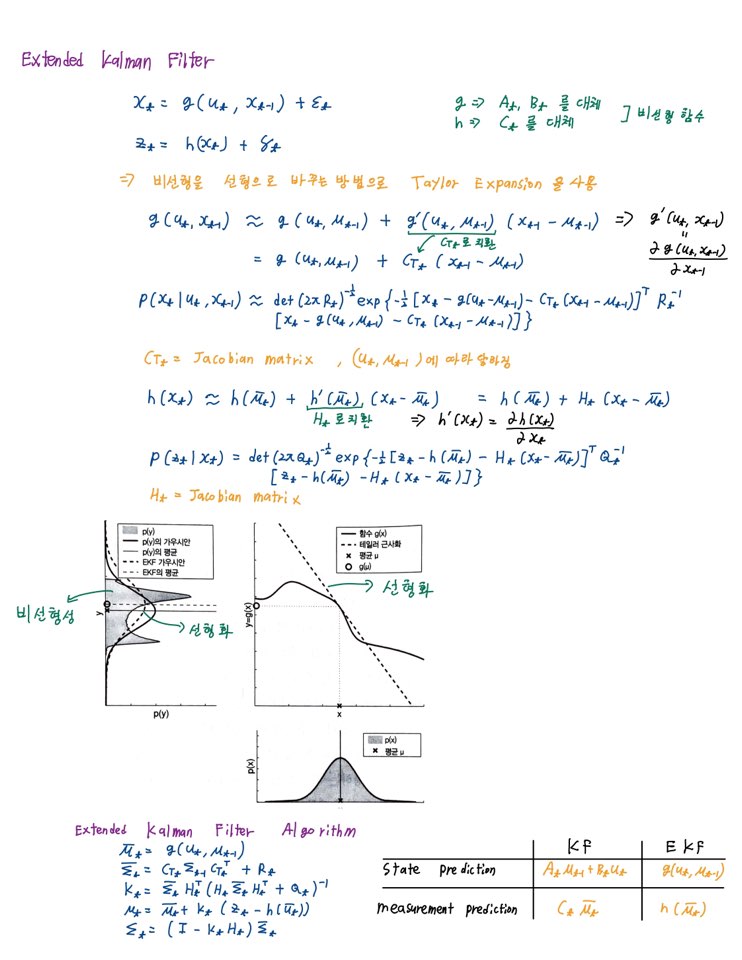 Extended Kalman Filter
x_t = g(u_t, x_{t-1}) + ε_t
g => A_t, B_t 를 대체
h => C_t 를 대체
] 비선형 함수
z_t = h(x_t) + δ_t
=> 비선형을 선형으로 바꾸는 방법으로 Taylor Expansion 을 사용
g(u_t, x_{t-1}) ≈ g(u_t, μ_{t-1}) + g'(u_t, μ_{t-1}) (x_{t-1} - μ_{t-1}) => g'(u_t, x_{t-1})
G_t로 치환
"
= g(u_t, μ_{t-1}) + G_t (x_{t-1} - μ_{t-1})
∂g(u_t, x_{t-1}) / ∂x_{t-1}
p(x_t | u_t, x_{t-1}) ≈ det(2πR_t)^{-1/2} exp{-1/2 [x_t - g(u_t - μ_{t-1}) - G_t (x_{t-1} - μ_{t-1})]^T R_t^{-1}
[x_t - g(u_t, μ_{t-1}) - G_t (x_{t-1} - μ_{t-1})]}
G_t = Jacobian matrix , (u_t, μ_{t-1})에 따라 달라짐
h(x_t) ≈ h(μ̄_t) + h'(μ̄_t) (x_t - μ̄_t) = h(μ̄_t) + H_t (x_t - μ̄_t)
H_t 로 치환
=> h'(x_t) = ∂h(x_t) / ∂x_t
p(z_t | x_t) = det(2πQ_t)^{-1/2} exp{-1/2 [z_t - h(μ̄_t) - H_t (x_t - μ̄_t)]^T Q_t^{-1}
[z_t - h(μ̄_t) - H_t (x_t - μ̄_t)]}
H_t = Jacobian matrix
p(y)
p(y)의 가우시안
p(y)의 평균
EKF 가우시안
EKF의 평균
비선형성
선형화
y
p(y)
함수 g(x)
테일러 근사화
평균 μ
g(μ)
선형화
y=g(x)
x
p(x)
평균 μ
p(x)
Extended Kalman Filter Algorithm
μ̄_t = g(u_t, μ_{t-1})
Σ̄_t = G_t Σ_{t-1} G_t^T + R_t
K_t = Σ̄_t H_t^T (H_t Σ̄_t H_t^T + Q_t)^{-1}
μ_t = μ̄_t + K_t (z_t - h(μ̄_t))
Σ_t = (I - K_t H_t) Σ̄_t
KF EKF
state prediction A_t μ_{t-1} + B_t u_t g(u_t, μ_{t-1})
measurement prediction C_t μ̄_t h(μ̄_t)